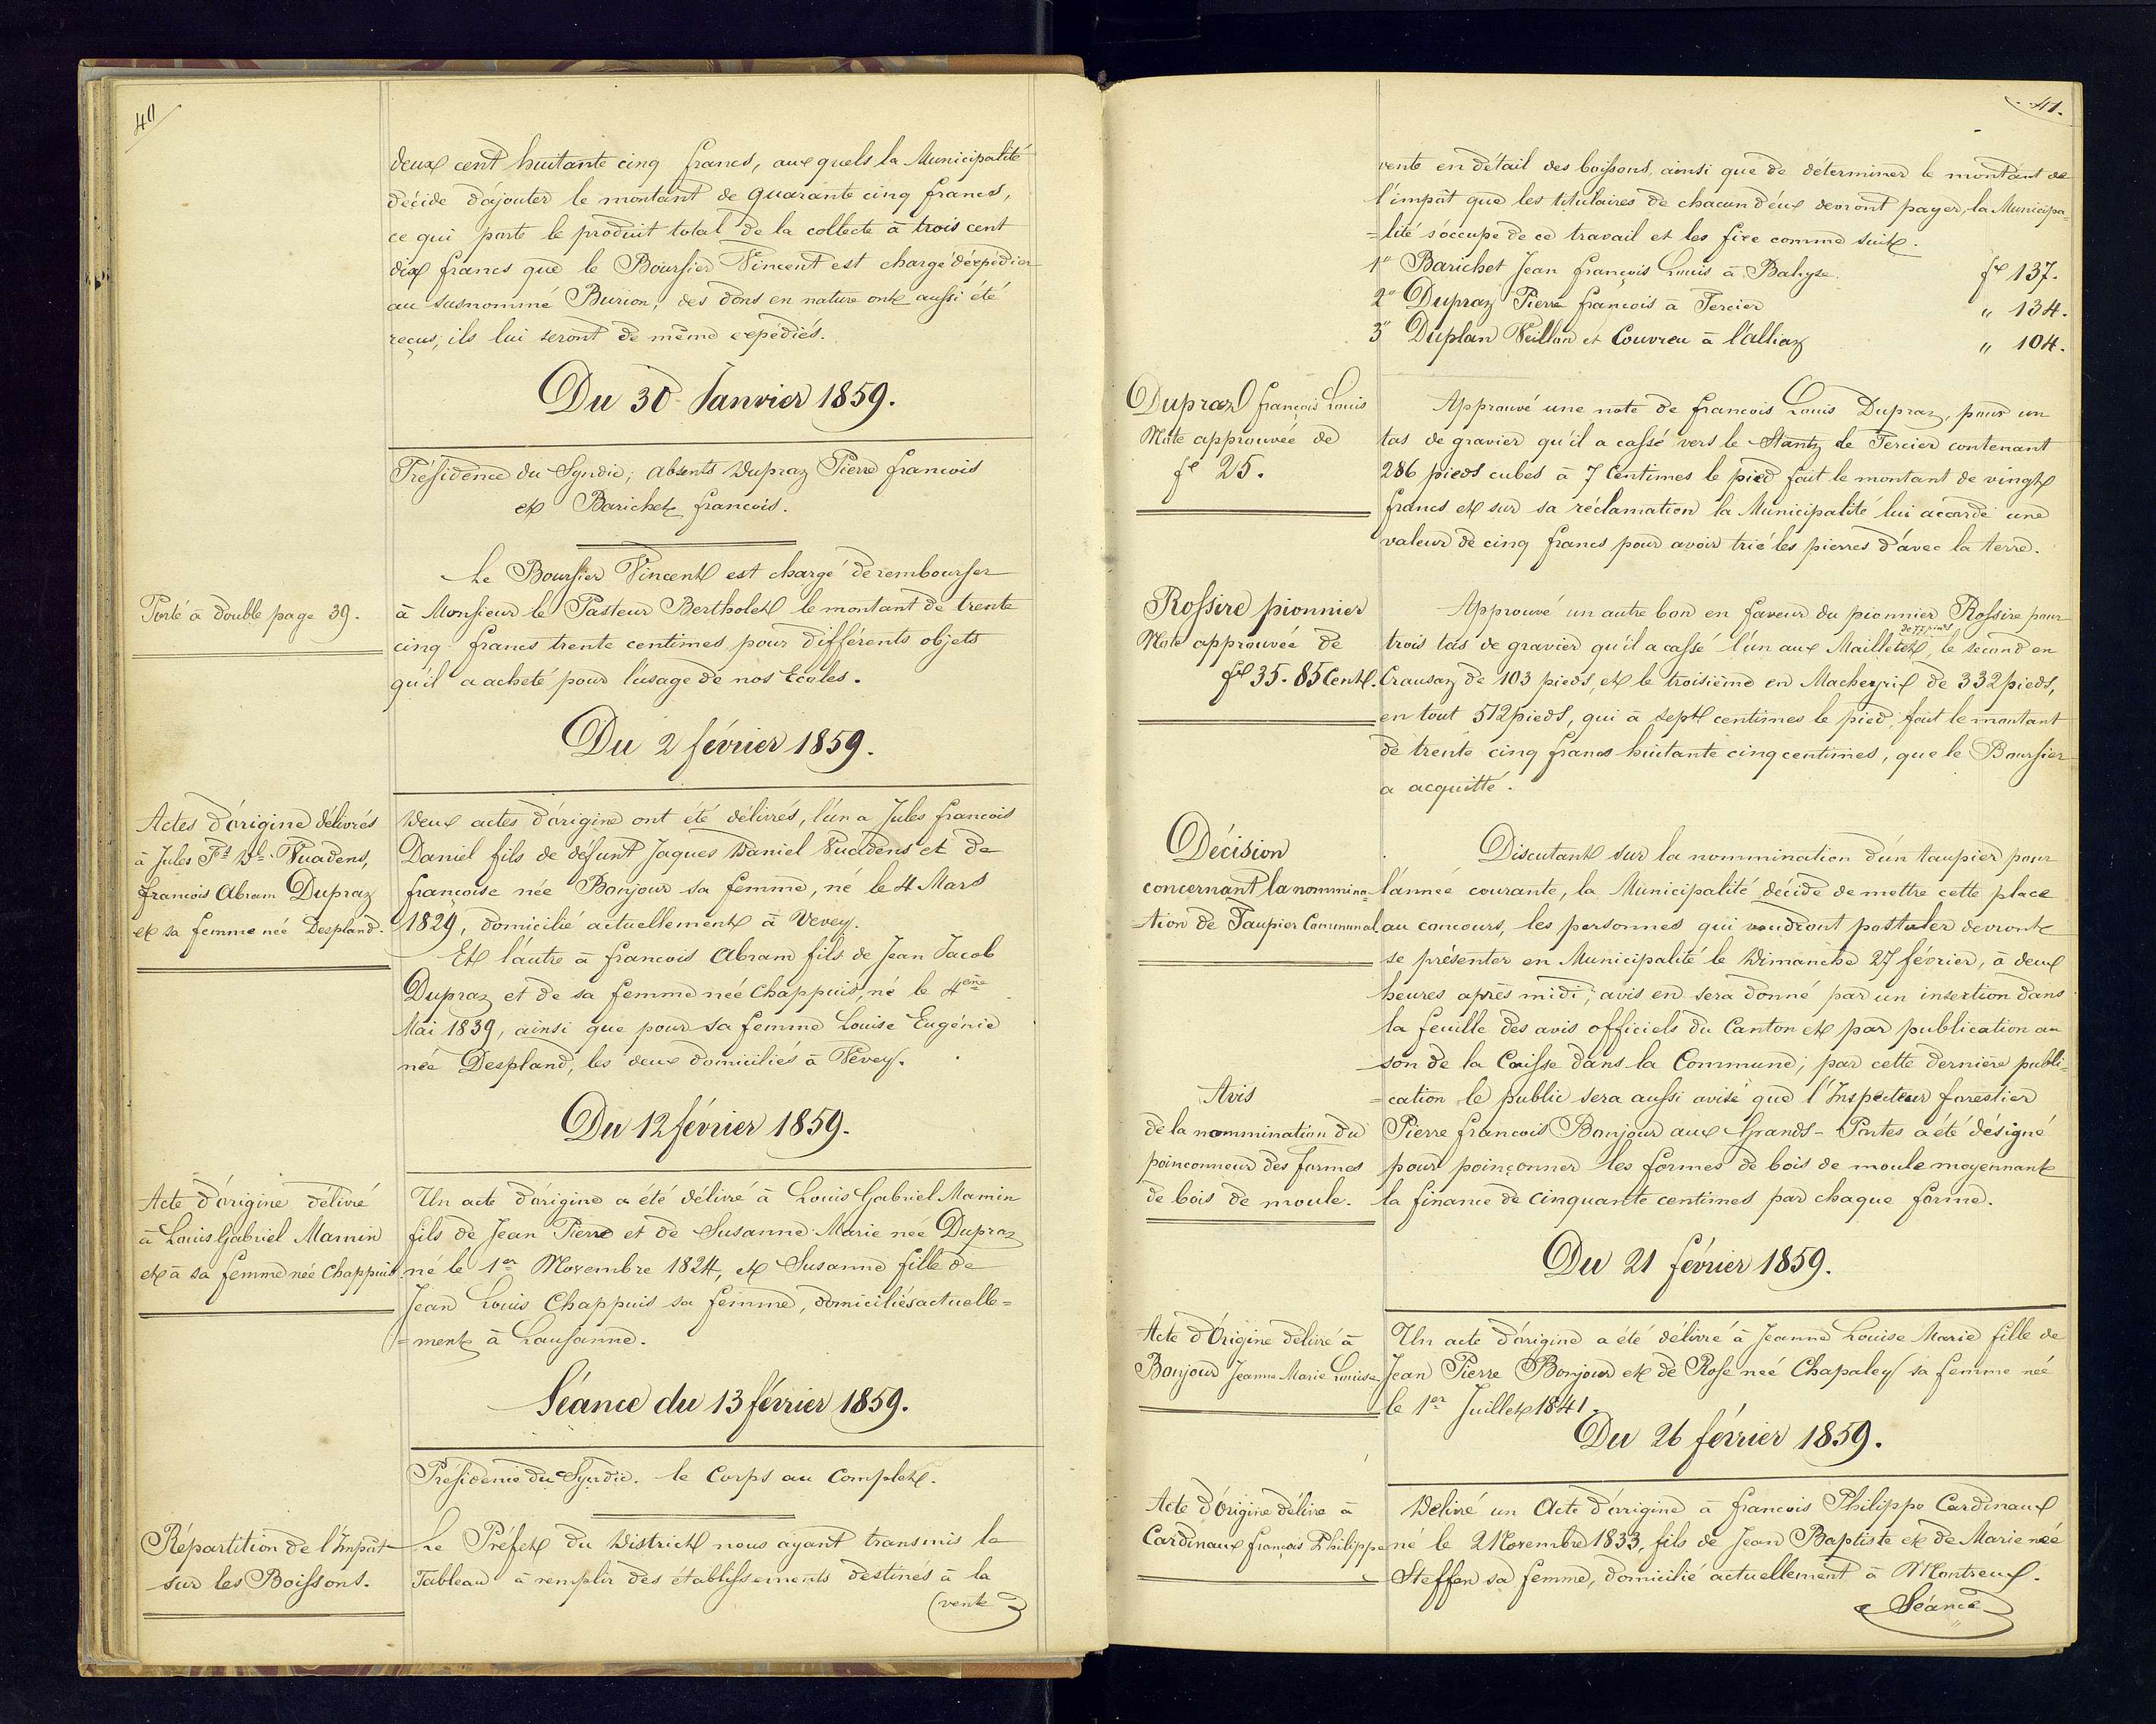 40
deux cent huitante cinq francs, aux quels la Municipalité
décide d'ajouter le montant de quarante cinq francs,
ce qui porte le produit total de la collecte à trois cent
dix francs que le Boursier Vincent est chargé d'expédier
au susnommé Burion; des dons en nature ont aussi été
reçus; ils lui seront de même expédiés.
Du 30 Janvier 1859.
Présidence du Syndic; absents Dupraz Pierre francois
et Barichet francois.
Le Boursier Vincent est chargé de rembourser
Porté à double page 39.
à Monsieur le Pasteur Bertholet le montant de trente
cinq francs trente centimes pour différents objets
qu'il a acheté pour l'usage de nos Ecoles.
Du 2 février 1859.
Actes d'origine délivrés
à Jules Fs Dl. Vuadens,
francois Abram Dupraz
et sa femme née Despland.
Deux actes d'origine ont été délivrés, l'un a Jules francois
Daniel fils de défunt Jaques Daniel Vuadens et de
francoise née Bonjour sa femme, né le 4 Mars
1829, domicilié actuellement à Vevey.
Et l'autre à francois Abram fils de Jean Jacob
Dupraz et de sa femme née Chappuis, né le 4eme
Mai 1839, ainsi que pour sa femme Louise Eugénie
née Despland, les deux domiciliés à Vevey.
Du 12 février 1859.
Acte d'origine délivré
à Louis Gabriel Mamin
et à sa femme née Chappuis
Un acte d'origine a été délivré à Louis Gabriel Mamin
fils de Jean Pierre et de Susanne Marie née Dupraz
né le 1er Novembre 1824, et Susanne fille de
Jean Louis Chappuis sa femme, domiciliés actuelle=
=ment à Lausanne.
Séance du 13 février 1859.
Présidence du Syndic. le Corps au Complet.
Répartition de l'Impôt
sur les Boissons.
Le Préfet du District nous ayant transmis le
Tableau à remplir des établissements destinés à la
(vente
41.
vente en détail des boissons, ainsi que de déterminer le montant de
l'impôt que les titulaires de chacun d'eux devront payer, la Municipa=
=lité s'occupe de ce travail et les fixe comme suit.
1° Barichet Jean françois Louis à Bahyse. fs 137.
2° Dupraz Pierre françois à Tercier " 134.
3° Duplan Veillon et Couvreu à l'alliaz " 104.
Dupraz françois Louis
Note approuvée de
fs 25.
Approuvé une note de francois Louis Dupraz, pour un
tas de gravier qu'il a cassé vers le Stantz de Tercier contenant
286 pieds cubes à 7 Centimes le pied fait le montant de vingt
francs et sur sa réclamation la Municipalité lui accorde une
valeur de cinq francs pour avoir trié les pierres d'avec la terre.
Rossire pionnier
Note approuvée de
fs 35. 85 Cent.
Approuvé un autre bon en faveur du pionnier Rossire pour
de 77 pieds
trois tas de gravier qu'il a cassé l'un aux Mailletet, le second en
Crausaz de 103 pieds, et le troisième en Macheyrix de 332 pieds,
en tout 512 pieds, qui à sept centimes le pied, fait le montant
de trente cinq francs huitante cinq centimes, que le Boursier
a acquitté.
Décision
concernant la nommina=
=tion de Taupier Communal.
Discutant sur la nommination d'un taupier pour
l'année courante, la Municipalité décide de mettre cette place
au concours, les personnes qui voudront postuler devront
se présenter en Municipalité le Dimanche 27 février, à deux
heures après midi; avis en sera donné par un insertion dans
la feuille des avis officiels du Canton et par publication au
son de la Caisse dans la Commune; par cette dernière publi=
=cation le public sera aussi avisé que l'Inspecteur forestier
Avis
de la nommination du
poinconneur des formes
de bois de moule.
Pierre francois Bonjour aux Grands-Portes a été désigné
pour poinçonner les formes de bois de moule moyennant
la finance de cinquante centimes par chaque forme.
Du 21 février 1859.
Acte d'Origine délivré à
Bonjour Jeanne Marie Louise
Un acte d'origine a été délivré à Jeanne Louise Marie fille de
Jean Pierre Bonjour et de Rose née Chapaley sa femme née
le 1er Juillet 1841.
Du 26 février 1859.
Acte d'Origine délivré à
Cardinaux françois Philippe
Delivré un Acte d'origine à francois Philippe Cardinaux
né le 2 Novembre 1833, fils de Jean Baptiste et de Marie née
Steffen sa femme, domicilié actuellement à Montreux.
Séance